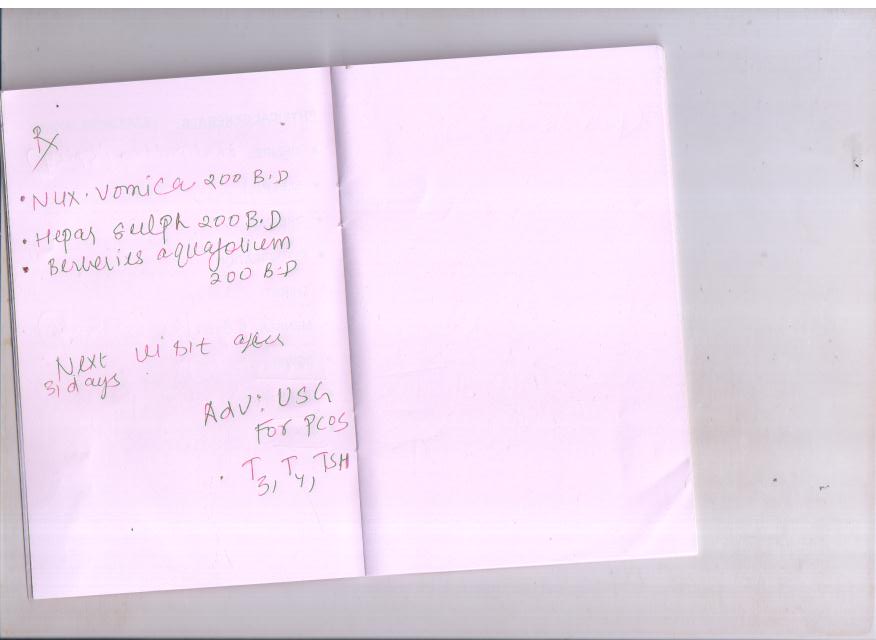 Rx
• Nux. Vomica 200 B.D
• Hepar Sulph 200 B.D
• Berberies aquafolium
200 B.D
Next visit after
31 days
Adv: USG
For PCOS
• T3, T4, TSH